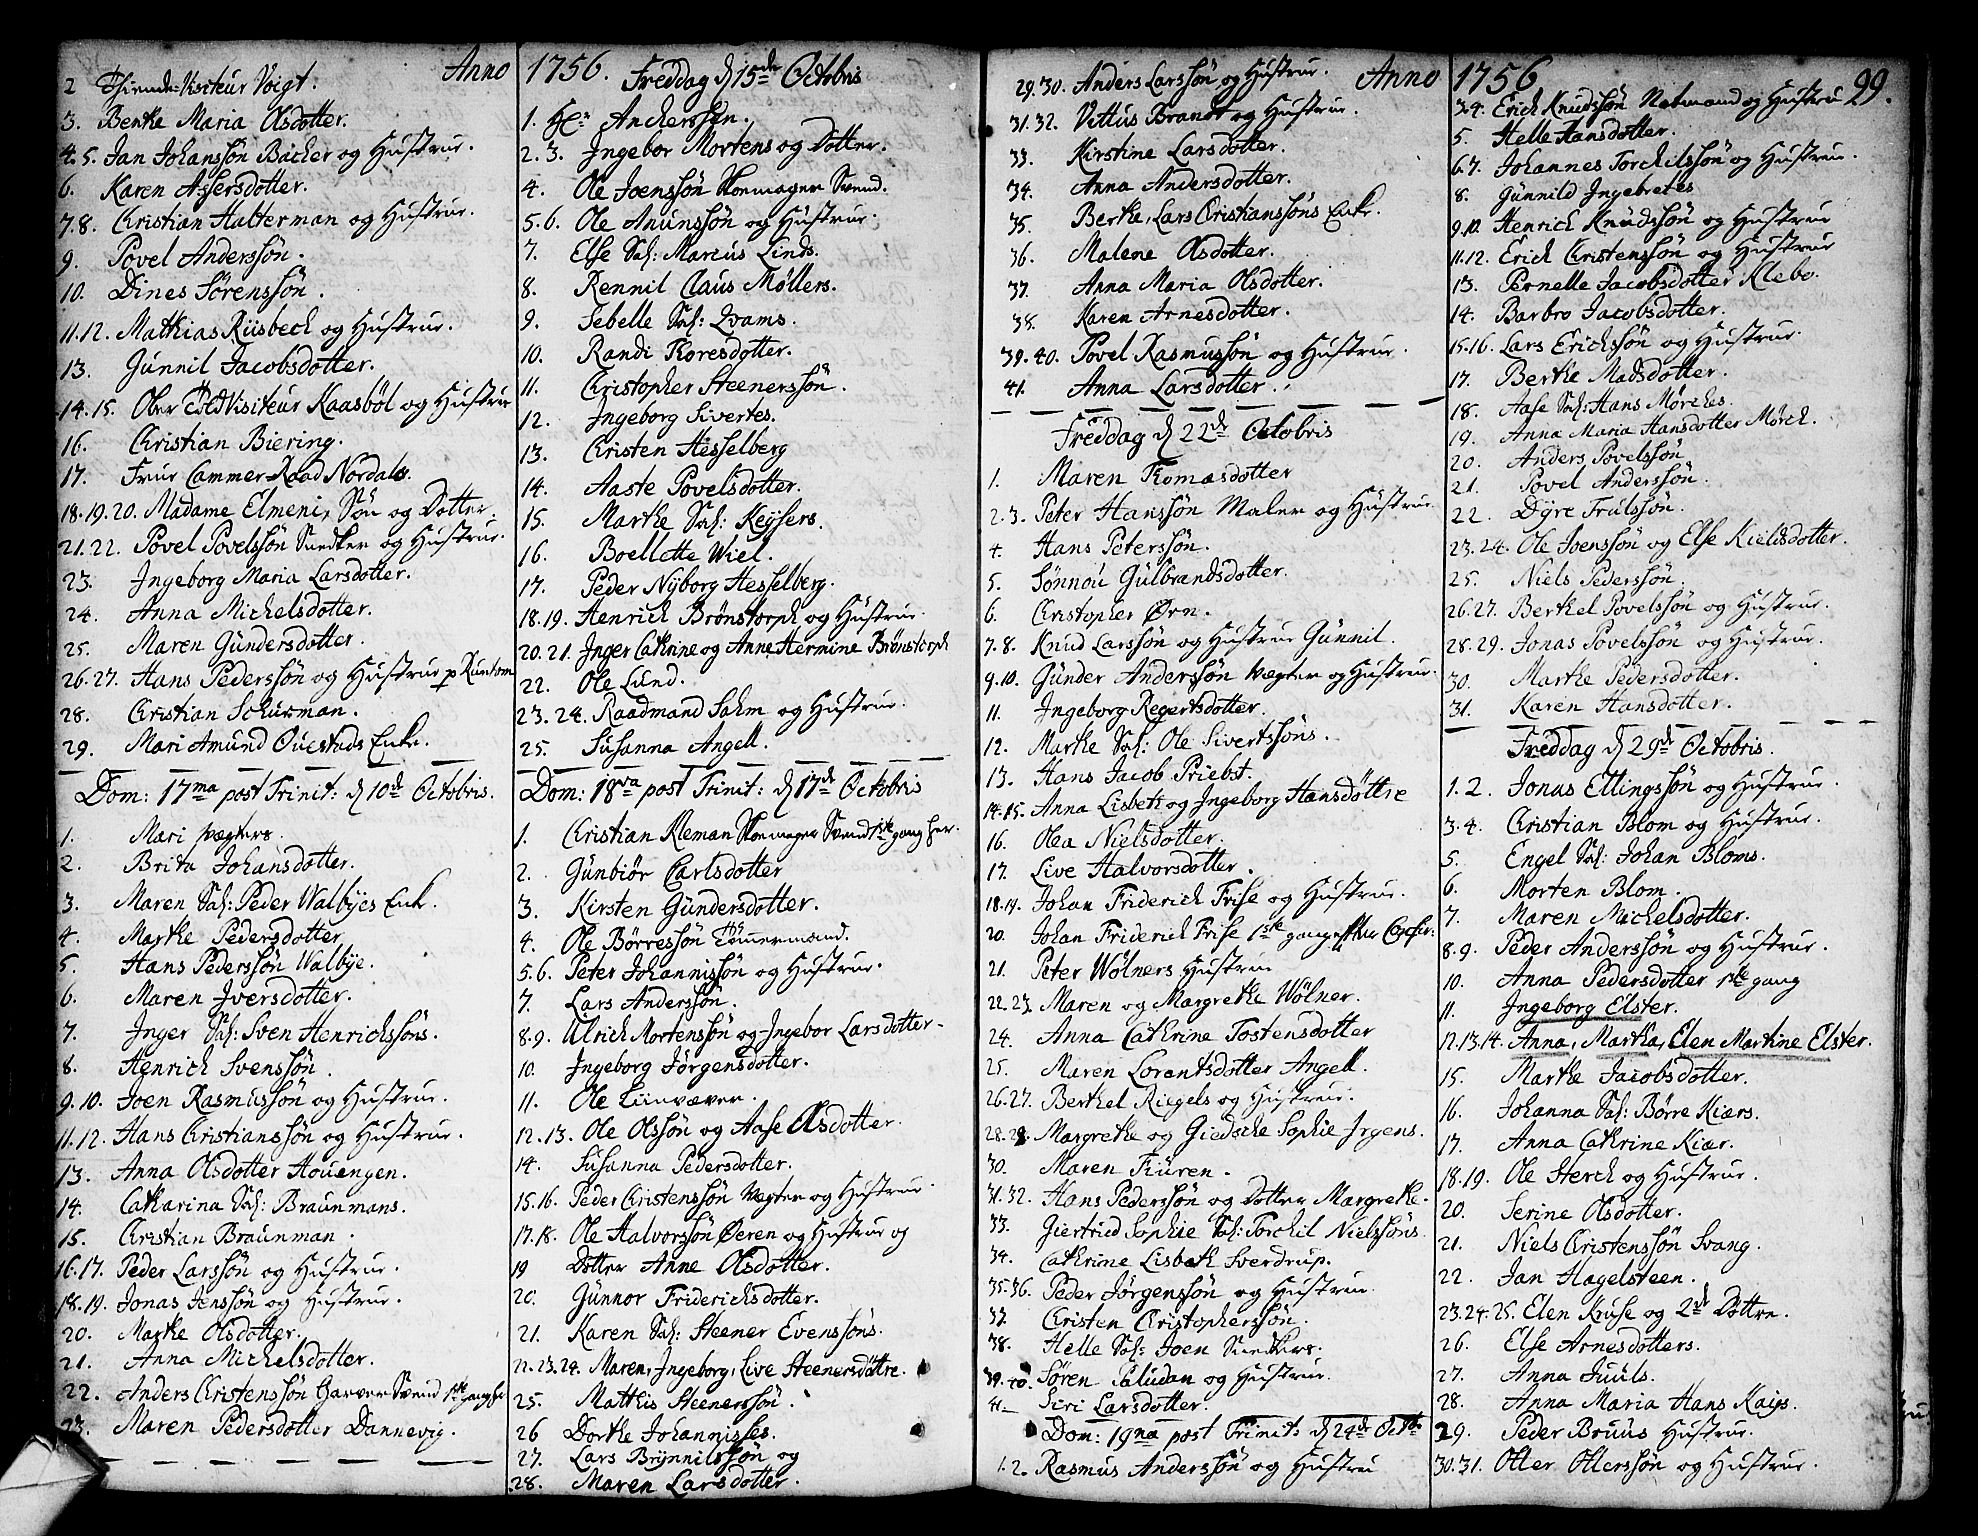 Anno
2 Thiende-Visiteur Voigt.
3. Bertke Maria Olsdotter.
4.5. Jan Johanssøn Backer og Hustrue.
6. Karen Assersdotter.
7.8. Christian Halterman og Hustrue.
9. Povel Anderssøn.
10. Dines Sørenssøn.
11.12. Mathias Riisbech og Hustrue.
13. Gunnil Jacobsdotter.
14.15. Ober Told Visiteur Kaasbøl og Hustrue
16. Christian Biering.
17. Frue Cammer-Raad Nordals.
18.19.20. Madame Elmeni, Søn og Dotter.
21.22. Povel Povelssøn Snedker og Hustrue.
23. Ingeborg Maria Larsdotter.
24. Anna Michelsdotter.
25. Maren Gundersdotter.
26.27. Hans Pederssøn og Hustrue p
28. Christian Schurman.
29. Mari Amund Ouestads Enke.
Dom: 17ma post Trinit: d 10de Octobris.
1. Mari Vægters.
2. Brita Johansdotter.
3. Maren Sal: Peder Walbyes Enk.
4. Marthe Pedersdotter
5. Hans Pederssøn Walbye.
6. Maren Iversdotter.
7. Inger Sal: Sven Henrichssøns.
8. Henrich Svenssøn.
9.10. Joen Rasmussøn og Hustrue.
11.12. Hans Christianssøn og Hustrue.
13. Anna Olsdotter Houengen.
14. Catharina Sal: Braunmans.
15. Christian Braunman.
16.17. Peder Larssøn og Hustrue.
18.19. Jonas Jenssøn og Hustrue.
20. Marthe Olsdotter.
21. Anna Michelsdotter.
22. Anders Christenssøn Garver Svend 1ste gang her
23. Maren Pedersdotter Dannevig.
1756. Freddag d 15de Octobris
1. Hr. Anckerssen.
2.3. Ingebor Mortens og Dotter.
4. Ole Joenssøn Skomager Svend.
5.6. Ole Anunssøn og Hustrue.
7. Else Sal: Marcus Linds.
8. Rennil Claus Møllers.
9. Sebelle Sal: Qvams.
10. Randi Thoresdotter.
11. Christopher Steenerssøn.
12. Ingeborg Sivertes.
13. Christen Hesselberg
14. Aaste Povelsdotter.
15. Marthe Sal: Keysers.
16. Boellette Wiel.
17. Peder Nyborg Hesselberg.
18.19. Henrich Brønstorph og Hustrue
20.21. Inger Cathrine og Anne Hermine Brønstorph
22. Ole Lund.
23.24. Raadmand Sahm og Hustrue.
25. Susanna Angell.
Dom: 18va post Trinit: d 17de Octobris
1. Christian Kleman Skomager Svend 1ste gang her.
2. Gunbiør Carlsdotter
3. Kirsten Gundersdotter.
4. Ole Børressøn Tømmermand.
5.6. Peter Johannissøn og Hustrue.
7. Lars Anderssøn.
8.9. Ulrich Mortenssøn og Ingebor Larsdotter.
10. Ingeborg Jørgensdotter.
11. Ole Linvæver.
12.13. Ole Olssøn og Aase Olsdotter.
14. Susanna Pedersdotter.
15.16. Peder Christenssøn Vegter og Hustrue.
17.18. Ole Halvorssøn Øeren og Hustrue og
19 Dotter Anne Olsdotter.
20. Gunnor Friderichsdotter.
21. Karen Sal: Steener Evenssøns.
22.23.24. Maren, Ingeborg, Live Steenersdøttre.
25. Mathis Steenerssøn.
26 Dorthe Johannisses.
27. Lars Brynnilssøn og
28. Maren Larsdotter.
Anno
29.30. Anders Larssøn og Hustrue.
31.32. Vittus Brandt og Hustrue.
33. Kirstine Larsdotter.
34. Anna Andersdotter.
35. Berthe, Lars Christianssøns Enke.
36. Malene Olsdotter.
37. Anna Maria Olsdotter.
38. Karen Arnesdotter.
39.40. Povel Rasmussøn og Hustrue.
41. Anna Larsdotter.
Freddag d 22de Octobris
1. Maren Thomasdotter
2.3. Peter Hanssøn Maler og Hustrue
4. Hans Peterssøn.
5. Sønnou Gulbrandsdotter.
6. Christopher Ørn.
7.8. Knud Larssøn og Hustrue Gunnil.
9.10. Gunder Anderssøn Vegter og Hustrue.
11. Ingeborg Regertsdotter.
12. Marthe Sal: Ole Sivertssøns.
13. Hans Jacob Priebst.
14.15. Anna Lisbeth og Ingeborg Hansdøttre
16. Olea Nielsdotter.
17. Live Halvorsdotter.
18.19. Johan Friderich Frise og Hustrue.
20. Johan Friderich Frise 1ste gang efter Confir:
21. Peter Wølners Hustrue
22.23. Maren og Margrethe Wølner.
24. Anna Cathrine Tostensdotter
25. Maren Lorentsdotter Angell.
26.27. Berthel Riegels og Hustrue.
28.29. Margrethe og Giedsche Sophie Irgens.
30. Maren Füren.
31.32. Hans Pederssøn og Dotter Margrethe.
33. Giertrud Sophie Sal: Torchil Nielssøns.
34. Cathrine Lisbeth Sverdrup.
35.36. Peder Jørgenssøn og Hustrue.
37. Christen Christopherssøn.
38. Helle Sal: Joen Snedkers.
39.40. Søren Paludan og Hustrue.
41 Siri Larsdotter.
Dom: 19na post Trinit: d 24de Octb
1.2. Rasmus Anderssøn og Hustrue
1756 99.
3.4. Erich Knudssøn og Hustrue
5. Helle Hansdotter.
6.7. Johannes Torchilssøn og Hustrue.
8. Gunnild Ingebretes
9.10. Henrich Knudssøn og Hustrue
11.12. Erich Christenssøn og Hustrue
13. Pernelle Jacobsdotter Klebo.
14. Barbro Jacobsdotter.
15.16. Lars Erichssøn og Hustrue.
17. Berthe Madsdotter.
18. Aase Sal: Hans Mørches.
19. Anna Maria Hansdotter Mørch.
20. Anders Povelssøn
21. Povel Anderssøn.
22. Dyre Trulssøn.
23.24. Ole Joenssøn og Else Kieldsdotter.
25. Niels Pederssøn.
26.27. Berthel Povelssøn og Hustrue.
28.29. Jonas Povelssøn og Hustrue.
30. Marthe Pedersdotter.
31. Karen Hansdotter.
Freddag d 29de Octobris.
1.2. Jonas Ellingssøn og Hustrue.
3.4. Christian Blom og Hustrue.
5. Engel Sal: Johan Bloms.
6. Morten Blom.
7. Maren Michelsdotter.
8.9. Peder Anderssøn og Hustrue.
10. Anna Pedersdotter 1ste gang
11. Ingeborg Elster.
12.13.14. Anna, Martha, Elen Martine Elster.
15. Marthe Jacobsdotter.
16. Johanna Sal: Børre Kiærs.
17. Anna Cathrine Kiær.
18.19. Ole Sterch og Hustrue.
20. Serine Olsdotter.
21. Niels Christenssøn Svang.
22. Jan Hagelsteen.
23.24.25. Elen Kruse og 2de Døttre.
26. Else Arnesdotters.
27. Anna Juuls.
28. Anna Maria Hans Kaijs.
29. Peder Bruus Hustrue.
30.31. Otter Otterssøn og Hustrue.